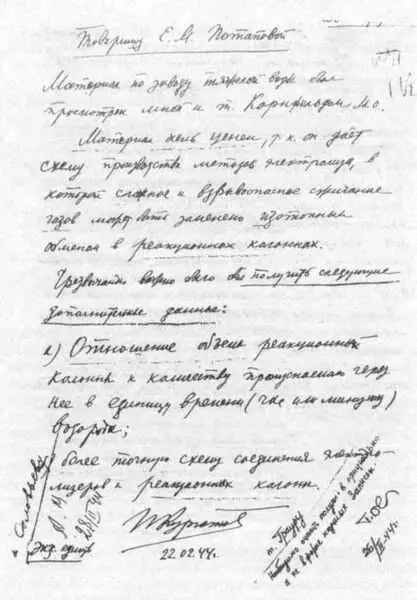 Товарищу Е. М. Потаповой
Материал по заводу тяжелой воды был
просмотрен мной и т. Корнфельдом М.О.
Материал очень ценен, т.к. он даёт
схему производства методом электролиза, в
которой сложное и взрывоопасное сжигание
газов может быть заменено изотопным
обменом в реакционных колоннах.
Чрезвычайно важно было бы получить следующие
дополнительные данные:
а) Отношение объема реакционной
колонны к количеству пропускаемого через
нее в единицу времени (час или минуту)
водорода;
) более точную схему соединения электро-
лизеров и реакционных колонн.
Курчатов
22.02.44.
Соловьева
Экз. един
28/II 44
т. Грауру
в
в форме